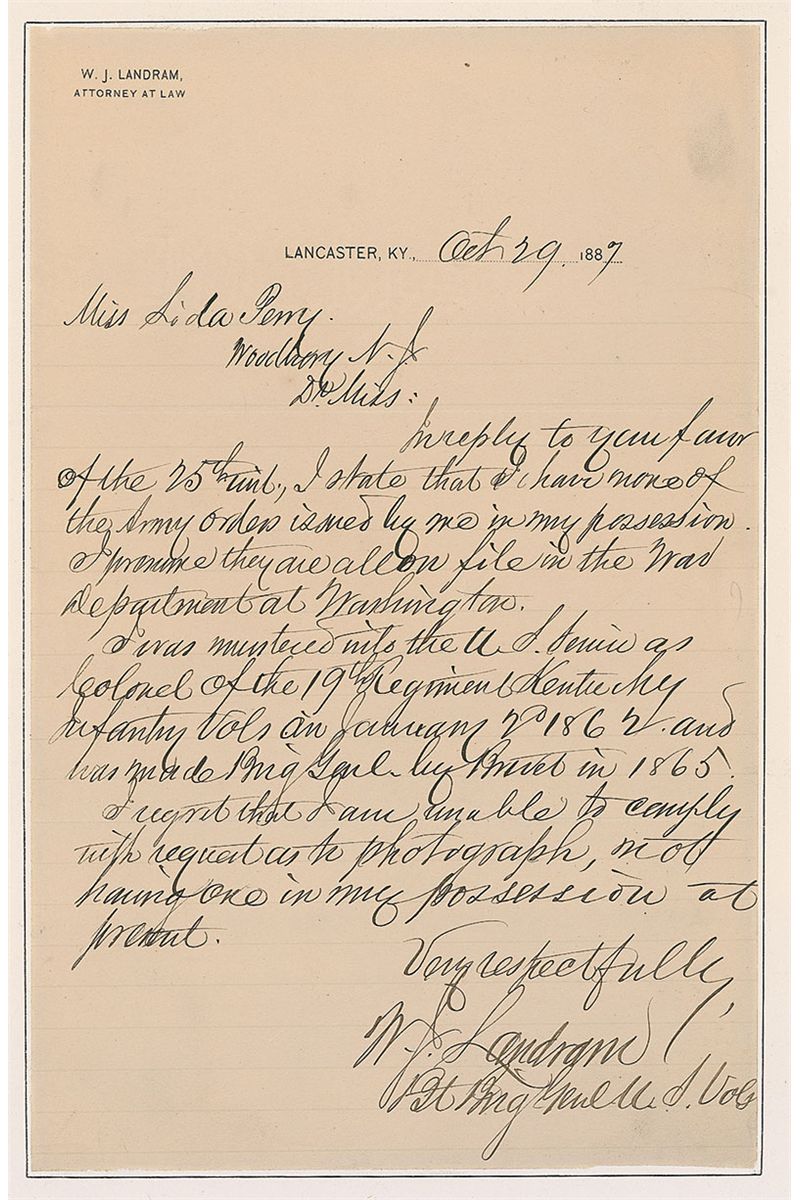 W. J. LANDRAM,
ATTORNEY AT LAW
LANCASTER, KY., Oct 29. 1887
Miss Lida Perry.
Woodbury N. J.
Dr. Miss:
In reply to your favor
of the 25th inst., I state that I have none of
the Army orders issued by me in my possession.
I presume they are all on file in the War
department at Washington.
I was mustered into the U. S. Service as
Colonel of the 19th Regiment Kentucky
Infantry Vols on January 2d 1862. and
was made Brig Genl. by Brevet in 1865.
I regret that I am unable to comply
with request as to photograph, not
having one in my possession at
present.
Very respectfully,
W. J. Landram
Bt Brig Genl U. S. Vols